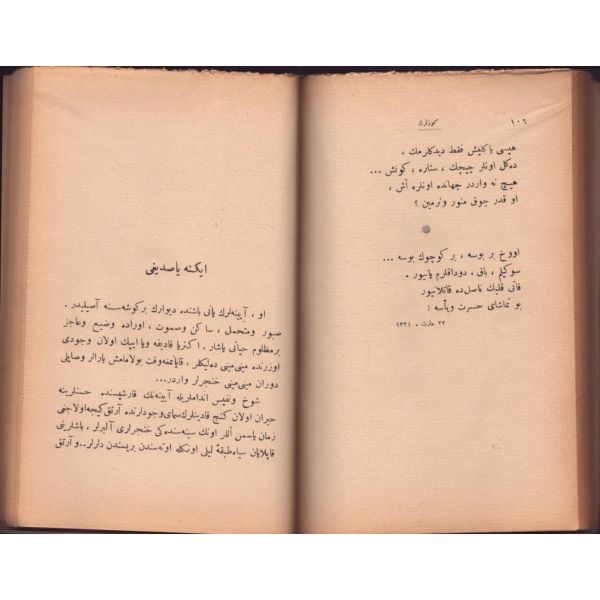 ١٠٦
كوزلرك
هپسی ياكليش فقط ديدكلرمك ،
دكل اونلر چيچك ، ستاره ، كونش ...
هيچ نه واردر جهانده اونلره أش ،
او قدر چوق منور ونرمين ؟
اووخ بر بوسه ، بر كوچوك بوسه ...
سوكيلم ، باق ، دوداقلرم يانيور .
فانی قلبك ناصل‌ده قاتلانيور
بو تماشای حسرت ويأسه :
٢٢ مارت ، ١٣٢١
ايكنه ياصديغی
او ، آيينه‌لرك يانی باشنده ديوارك بر كوشه‌سنه آصيليدر .
صبور ومتحمل ، ساكن وصموت ، اوراده وضيع وعاجز
بر مظلوم حياتی ياشار . اكثريا قاديفه ويا ايپك اولان وجودی
اوزرنده مينی مينی ده‌ليكلر ، قاپانمغه‌وقت بولامامش يارالر وصاپلی
دوران مينی مينی خنجرلر واردر...
شوخ ونفيس انداملريله آيينه‌نك قارشيسنده حسنلرينه
حيران اولان كنج قادينلرك سمای وجودلرنده آرتق كيجه اولاجغی
زمان ياسمن أللر اونك سينه‌سنده‌كی خنجرلری آليرلر ، باشلرينی
قاپلايان سياه طبقهٔ ليلی اونكله اوته‌سندن بريسندن دلرلر.. و آرتق